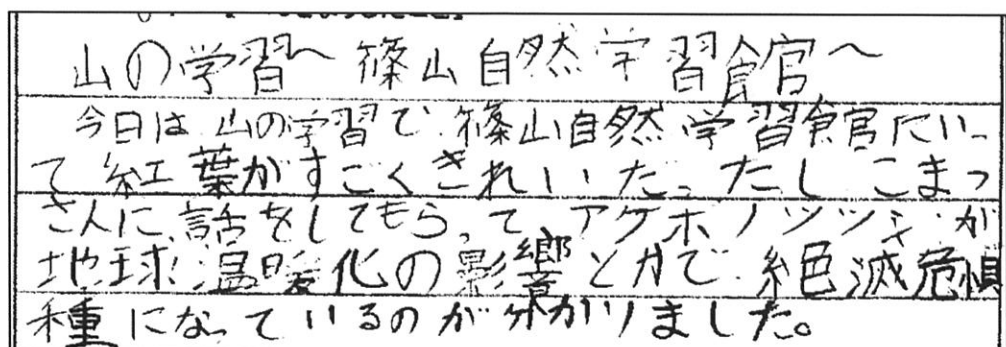 山の学習〜篠山自然学習館〜
今日は山の学習で、篠山自然学習館にいっ
て紅葉がすごくきれいだったしこまつ
さんに、話をしてもらって、アケボノツツジが
地球温暖化の影響とかで、絶滅危惧
種になっているのが分かりました。